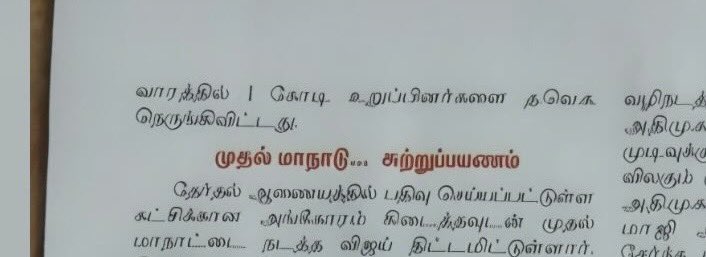 வாரத்தில் 1 கோடி உறுப்பினர்களை தவெக
நெருங்கிவிட்டது.
முதல் மாநாடு... சுற்றுப்பயணம்
தேர்தல் ஆணையத்தில் பதிவு செய்யப்பட்டுள்ள
கட்சிக்கான அங்கீகாரம் கிடைத்தவுடன் முதல்
மாநாட்டை நடத்த விஜய் திட்டமிட்டுள்ளார்.
வழிநடத்
அதிமுக
முடிவுக்கு
விலகும்
அதிமுக
மாஜி